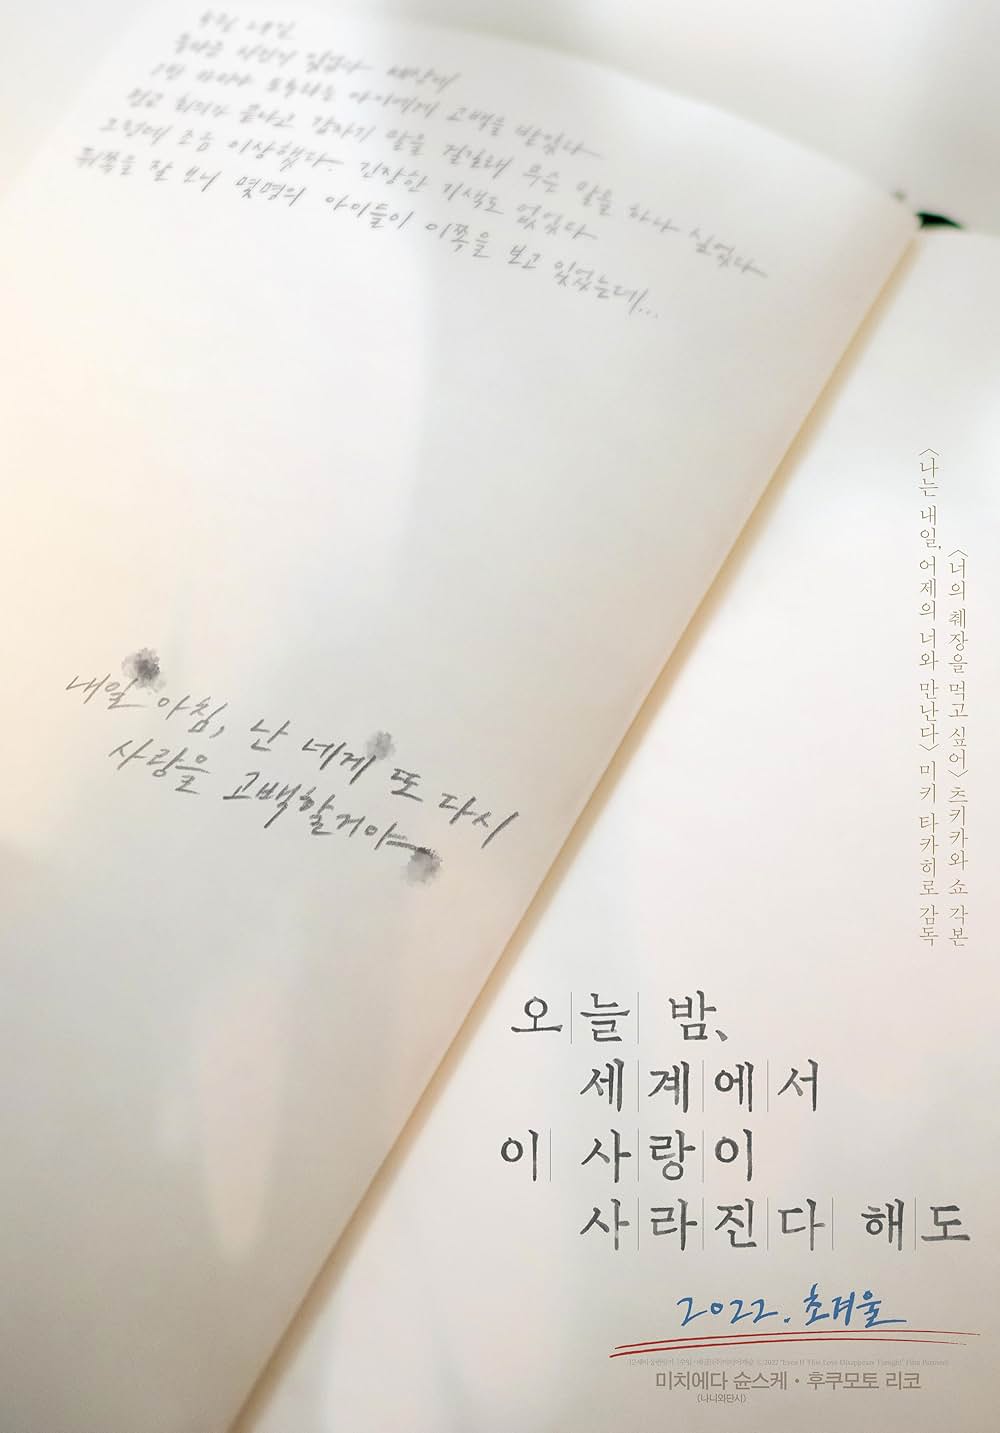 믿을 수 없는 일이 있었다. 세상에
1반 카미야 토루라는 아이에게 고백을 받았다
먼고 회의가 끝나고 갑자기 말을 걸길래 무슨 말을 하나 싶었다
그런데 조금 이상했다. 긴장한 기색도 없었다
뒤쪽을 잘 보니 몇명의 아이들이 이쪽을 보고 있었는데...
내일 아침, 난 네게 또 다시
사랑을 고백할거야
<너의 췌장을 먹고 싶어> 츠키카와 쇼 각본
<나는 내일, 어제의 너와 만난다> 미키 타카히로 감독
오늘 밤,
세계에서
이 사랑이
사라진다 해도
2022. 초겨울
©2022 "Even If This Love Disappears Tonight" Film Partners
미치에다 슌스케 · 후쿠모토 리코
(나니와단시)